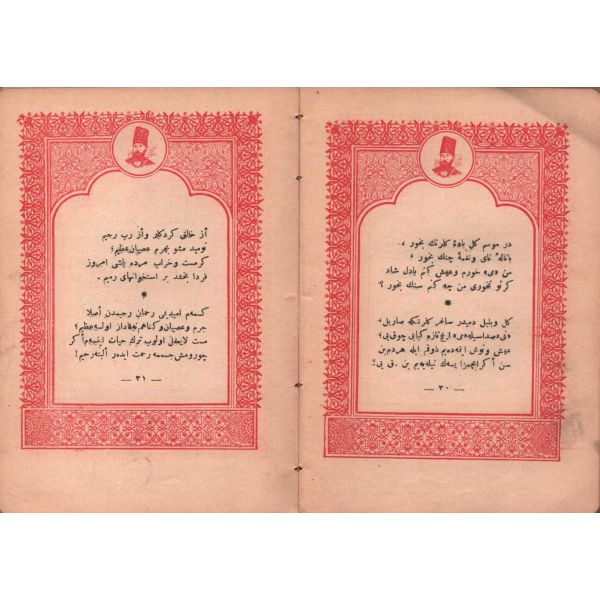 در موسم كل بادۀ كلرنك بخور ،
بانالۀ نای ونغمۀ چنك بخور ،
من «می» خورم وعیش كنم بادل شاد
كر تو نخوری من چه كنم سنك بخور ؟
*
كل وبلبل دمیدر ساغر كلرنكه صاریل
«نی» صداسیله «می» ایچ تازه كبابی چوق یی ؛
عیش ونوش ایتمه‌دیم ذوقم ایله هردم بن
سن اكر ایچمزایسه‌ك نیله‌یه‌یم بن . ق یی !
— ٣٠ —
از خالق كردكار واز رب رحیم
نومید مشو بجرم عصیان عظیم ؛
كرمست وخراب مرده باشی امروز
فردا بخشد بر استخوانهای رمیم .
*
كسمه‌م امیدیمی رحمان رحیمدن اصلا
جرم وعصیان وكناهم نه‌قدار اولسه عظیم ؛
مست لایعقل اولوب ترك حیات ایتسه‌م اكر
چورومش جسممه رحمت ایدەر ألبته رحیم !
— ٣١ —